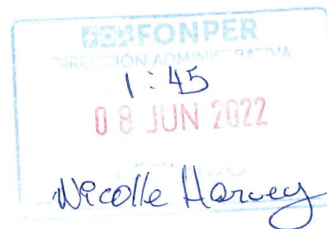 FONPER
DIRECCIÓN ADMINISTRATIVA
1:45
08 JUN 2022
Nicolle Harvey